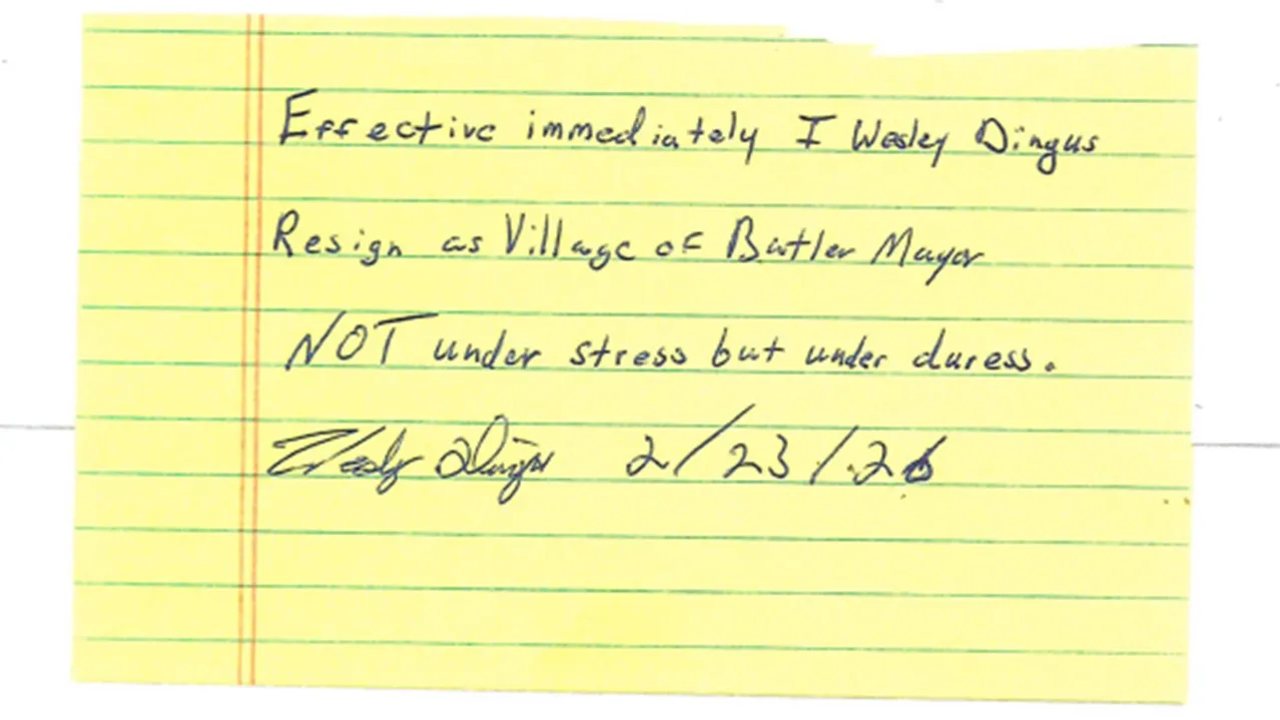 Effective immediately I Wesley Dingus
Resign as Village of Butler Mayor
NOT under stress but under duress.
Wesley Dingus 2/23/26